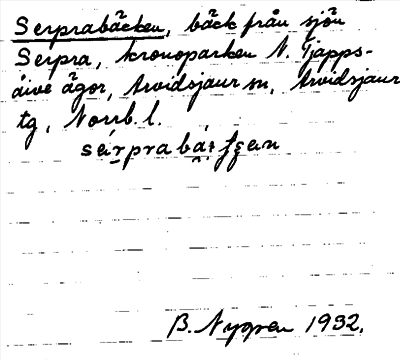 Serprabäcken, bäck från sjön
Serpra, kronoparken N. Tjapps-
åive ägor, Arvidsjaur sn, Arvidsjaur
tg, Norrb. l.
B. Nygren 1932.